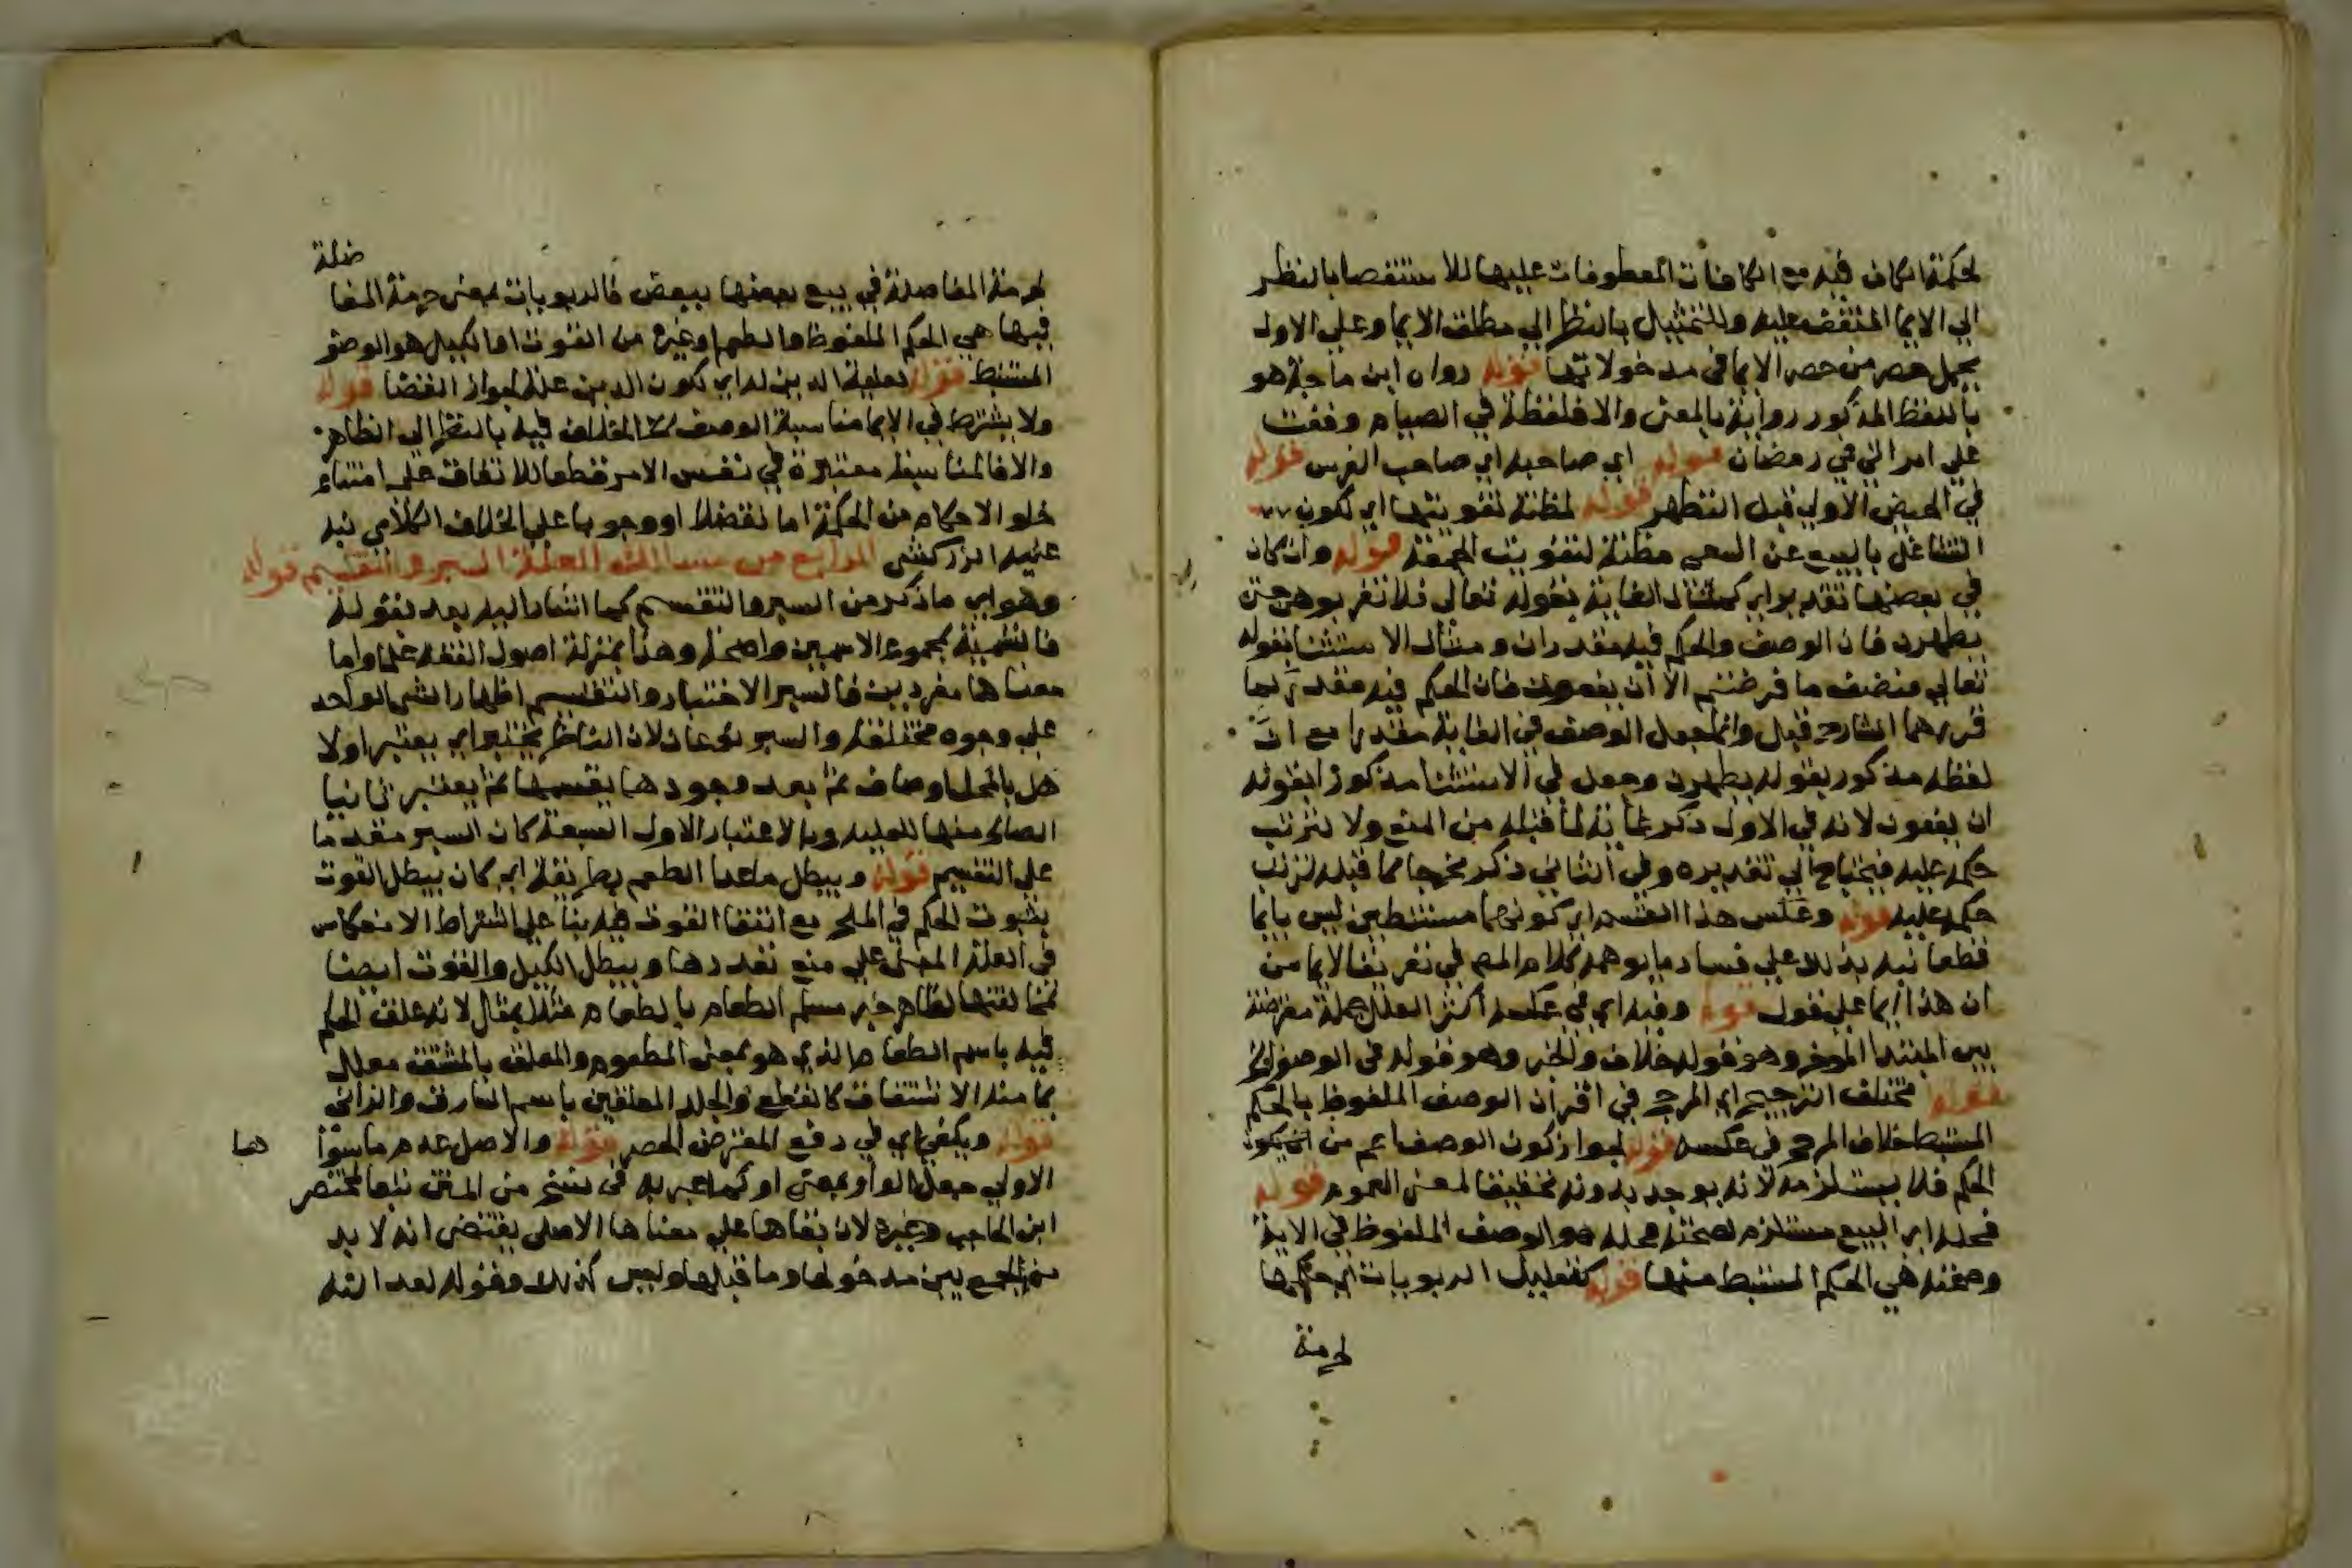 لحكمة الكاف فيه مع الكافات المعطوفات عليها للاستقصا بالنظر
الي الايما المتفق عليه وللتمثيل بالنظر الي مطلق الايما وعلي الاول
يحمل حصر من حصر الايما في مدخولاتها قوله رواه ابن ماجة هو
باللفظ المذكور رواية بالمعني والا فلفظه في الصيام وقعت
علي امراتي في رمضان قوله اي صاحبه اي صاحب الفرس قوله
في الحيض الاولي قبل التطهر قوله لمظنة تفويتها اي لكون
التشاغل بالبيع عن السعي مظنة لتفويت الجمعة قوله وان كان
في بعضها تقدير اي كمثال الغاية بقوله تعالي فلا تقربوهن حتي
يطهرن فان الوصف والحكم فيه مقدران ومثال الاستثنا بقوله
تعالي فنصف ما فرضتم الا ان يعفون فان الحكم فيه مقدر كما
قررهما الشارح قبل وانما جعل الوصف في الغاية مقدرا مع ان
لفظه مذكور بقوله يطهرن وجعل في الاستثنا مذكورا بقوله
ان يعفون لانه في الاول ذكر غاية لما قبله من المنع ولا يترتب
حكمه عليه فيحتاج الي تقديره وفي الثاني ذكر مخرجا مما قبله لترتب
حكمه عليه قوله وعكس هذا القسم اي كونهما مستنبطين ليس بايما
قطعا نبه بذلك علي فساد ما يوهمه كلام المص في تعريف الايما من
ان هذا ايما علي قول قوله وفيه اي في عكسه اكثر العلل جملة معترضة
بين المبتدا الموخر وهو قوله خلاف والخبر وهو قوله في الوصف الخ
قوله مختلف الترجيح اي المرجح في اقتران الوصف الملفوظ بالحكم
المستنبط خلاف المرجح في عكسه قوله لجواز كون الوصف اعم من ان يكون
الحكم فلا يستلزمه لانه يوجد بدونه تحقيقا لمعني العموم قوله
فحله اي البيع مستلزم لصحته فحله هو الوصف الملفوظ في الاية
وصحته هي الحكم المستنبط منها قوله كتعليل الربويات اي حكمها
لحرمة
ضلة
لحرمة المفاضلة في بيع بعضها ببعض فالربويات بمعني حرمة المفا
فيها هي الحكم الملفوظ والطعم او غيره من القوت او الكيل هو الوصف
المستنبط قوله لعلية الدين له اي كون الدين علة لجواز القضا قوله
ولا يشترط في الايما مناسبة الوصف الخ الخلاف فيه بالنظر الي الظاهر
والا فالمناسبة معتبرة في نفس الامر قطعا للاتفاق علي امتناع
خلو الاحكام من الحكمة اما تفضلا او وجوبا علي الخلاف الكلامي نبه
عليه الزركشي الرابع من مسالك العلة السبر والتقسيم قوله
وهو اي ما ذكر من السبر والتقسيم كما اشار اليه بعد بقوله
فالتسمية بمجموع الاسمين واضحة وهذا بمنزلة اصول الفقه علما واما
معناهما مفردين فالسبر الاختبار والتقسيم اظهار الشي الواحد
علي وجوه مختلفة والسبر نوعان لان الناظر يختبر اي يعتبر اولا
هل بالمحل اوصاف ثم بعد وجودها يقسمها ثم يعتبر ثانيا
الصالح منها للعلية وبالاعتبار الاول السبعة كان السبر مقدما
علي التقسيم قوله ويبطل ما عدا الطعم بطريقة اي كان يبطل القوت
بثبوت الحكم في الملح مع انتفا القوت فيه بنا علي اشتراط الانعكاس
في العلة المبني علي منع تعددها ويبطل الكيل والقوت ايضا
بمخالفتها لظاهر خبر مسلم الطعام بالطعام مثلا بمثل لانه علق الحكم
فيه باسم الطعام الذي هو بمعني المطعوم والمعلق بالمشتق معلل
بما منه الاشتقاق كالقطع والجلد المعلقين باسم السارق والزاني
قوله ويكفي اي في دفع المعترض الحصر قوله والاصل عدم ما سوا
ها
الاولي جعل الواو بمعني او كما عبر به في نسخ من المتن تبعا لمختصر
ابن الحاجب وغيره لان بقاها علي معناها الاصلي يقتضي انه لا بد
من الجمع بين مدخولها وما قبلها وليس كذلك وقوله لعدالته